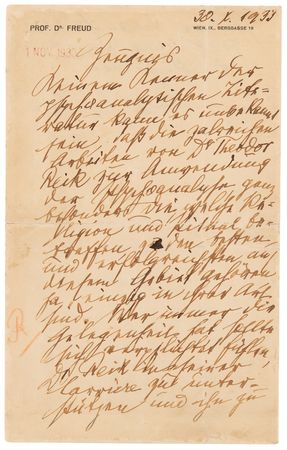 PROF. DR. FREUD
30. X. 1933
WIEN, IX., BERGGASSE 19
1 NOV 193
Zeugnis
Keinem Kenner der
psychoanalytischen Lite-
ratur kann es unbekannt
sein, daß die zalreichen
Arbeiten von Dr Theodor
Reik zur Anwendung
der Psychoanalyse ganz
besonders die welche Re-
ligion und Ritual be-
treffen zu den besten
und erfolgreichsten auf
diesem Gebiet gehören
ja, einzig in ihrer Art
sind. Wer immer die
Gelegenheit hat sollte
sich verpflichtet fühlen,
Dr Reik in seiner
Carrière zu unter-
stützen und ihn zu